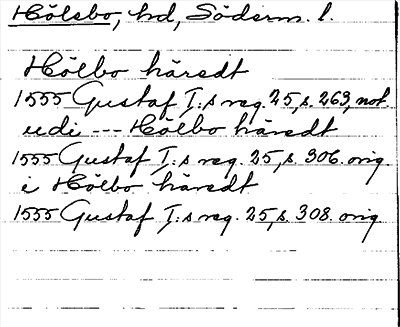 Hölebo, hd, Söderm. l.
Hölbo häredt
1555 Gustaf I:s reg. 25, s. 263, not.
udi --- Hölbo häredt
1555 Gustaf I:s reg. 25, s. 306. orig.
i Hölbo häredt
1555 Gustaf I:s reg. 25, s. 308. orig